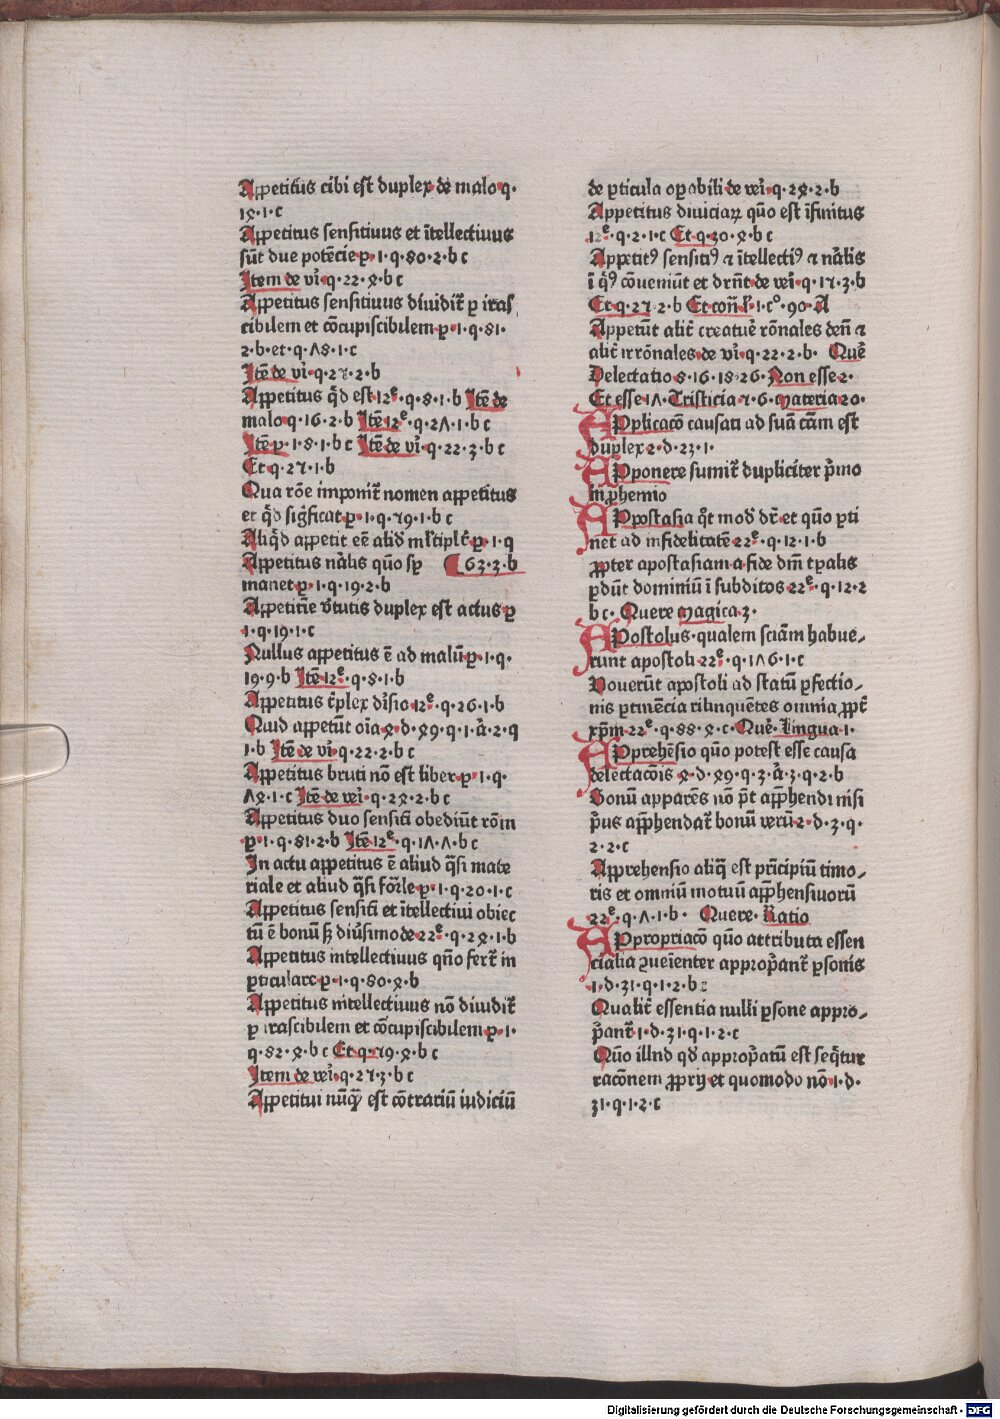 Appetitus cibi est duplex de malo q·
1ꝝ·1·c
Appetitus sensitiuus et ītellectiuus
sūt due potēcie p·1·q·80·2·b c
Item de vi͛·q·22·ꝝ·b c
Appetitus sensitiuus diuidit᷑ ꝑ iras
cibilem et cōcupiscibilem p·1·q·81·
2·b·et·q·Λ8·1·c
Itē de vi͛·q·2ꝛ·2·b
Appetitus q̄d est 12ͤ·q·8·1·b Itē de
malo q·16·2·b Itē 12ͤ·q·2Λ·1·b c
Itē p·1·8·1·b c Itē de vi͛·q·22·3·b c
Et q·2ꝛ·1·b
Qua rōe imponit᷑ nomen appetitus
et q̄d sig̅ficat p·1·q·ꝛ9·1·b c
Aliq̄d appetit eē aliđ ml̅tiplr̅ p·1·q
Appetitus nālis quo sp̄ 63·3·b
manet p·1·q·19·2·b
Appetitiē v̄tutis duplex est actus p
1·q·19·1·c
Nullus appetitus ē ad malū p·1·q·
19·9·b Itē 12ͤ·q·8·1·b
Appetitus t̄plex dr̄sio 12ͤ·q·26·1·b
Quid appetūt oīa ꝝ·d·ꝝ9·q·1·ā·2·q
1·b Itē de vi͛·q·22·2·b c
Appetitus bruti nō est liber p·1·q·
Λꝝ·1·c Itē de vei͛·q·2ꝝ·2·b c
Appetitus duo sensiti obediūt rōm
p·1·q·81·2·b Itē 12ͤ·q·1Λ·Λ·b c
In actu appetitus ē aliud q̄si mate
riale et aliud q̄si for̄le p·1·q·20·1·c
Appetitus sensiti et ītellectiui obiec
tū ē bonū sꝫ diūsimode 22ͤ·q·2ꝝ·1·b
Appetitus intellectiuus qn̄o fert᷑ in
ꝑticulare p·1·q·80·ꝝ·b
Appetitus intellectiuus nō diuidit᷑
ꝑ irascibilem et cōcupiscibilem p·1·
q·82·ꝝ·b c Et q·ꝛ9·ꝝ·b c
Item de vei͛·q·2ꝛ·3·b c
Appetitui nūq̄ est cōtrariū iudiciū
de ꝑticula oꝑabili de vei͛·q·2ꝝ·2·b
Appetitus diuiciaꝝ quo est īfinitus
12ͤ·q·2·1·c Et q·30·ꝝ·b c
Appetitꝰ sensitiꝰ ⁊ ītellectiꝰ ⁊ nālis
ī qͥꝰ cōueniūt et drn̄t de vei͛·q·1ꝛ·3·b
Et q·2ꝛ·2·b Et con̄ l·1·c°·90·A
Appetūt alit̄ creatue̅ rōnales den̄ ⁊
alit̄ irrōnales de vi͛·q·22·2·b· Que̅
Delectatio 8·16·18·26·Non esse 2·
Et esse 1Λ·Tristicia ꝛ·6·materia 20·
APplicacō causati ad suā cām est
duplex 2·d·23·1·
APponere sumit᷑ dupliciter p̄mo
in ꝓhemio
APostasia q̄t mod̄ dr̄ et quo ꝑti
net ad infidelitatē 22ͤ·q·12·1·b
ꝓpter apostasiam a fide dn̄i tꝑalis
ꝑdūt dominiū ī subditos 22ͤ·q·12·2
b c· Quere magica 3·
APostolus·qualem sciām habue-
runt apostoli 22ͤ·q·1Λ6·1·c
Vouerūt apostoli ad statū ꝑfectio-
nis ꝑtinēcia rilinquētes omnia ꝓpt̄
xp̄m 22ͤ·q·88·ꝝ·c·Que̅·lingua 1·
APprehēsio quo potest esse causa
delectacōis ꝝ·d·ꝝ9·q·3·ā·3·q·2·b
Bonū apparēs nō p̄t app̄hendi nisi
p̄us app̄hendat᷑ bonū verū 2·d·3·q·
2·2·c
Apprehensio aliq̄ est prīcipiū timo-
ris et omniū motuū app̄hensiuorū
22ͤ·q·Λ·1·b· Quere·Ratio
APpropriacō quo attributa essen
cialia ꝯueīenter approp̄ant᷑ ꝑsonis
1·d·31·q·1·2·b c
Qualit̄ essentia nulli ꝑsone appro-
p̄ant᷑ 1·d·31·q·1·2·c
Quo illud qd̄ approp̄atū est seq̄tur
racōnem ꝓprij et quomodo nō 1·d·
31·q·1·2·c
Digitalisierung gefördert durch die Deutsche Forschungsgemeinschaft - DFG